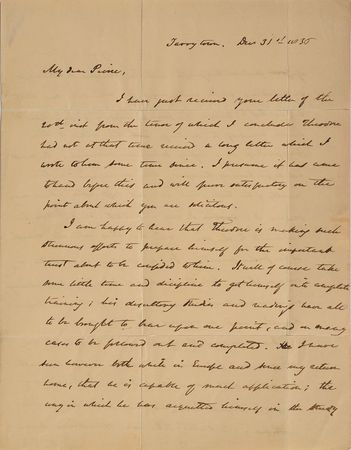 Tarrytown. Dec 31st 1836
My dear Peirce,
I have just received your letter of the
20th inst from the tenor of which I conclude Theodore
had not at that time received a long letter which I
wrote to him some time since. I presume it has come
to hand before this and will prove satisfactory on the
point about which you are solicitous.
I am happy to hear that Theodore is making such
strenuous efforts to prepare himself for the important
trust about to be confided to him. It will of course take
some little time and discipline to get himself into complete
training; his desultory studies and readings have all
to be brought to bear upon one point, and in many
cases to be followed out and completed. I have
seen however both while in Europe and since my return
home, that he is capable of much application; the
way in which he has acquitted himself in the study